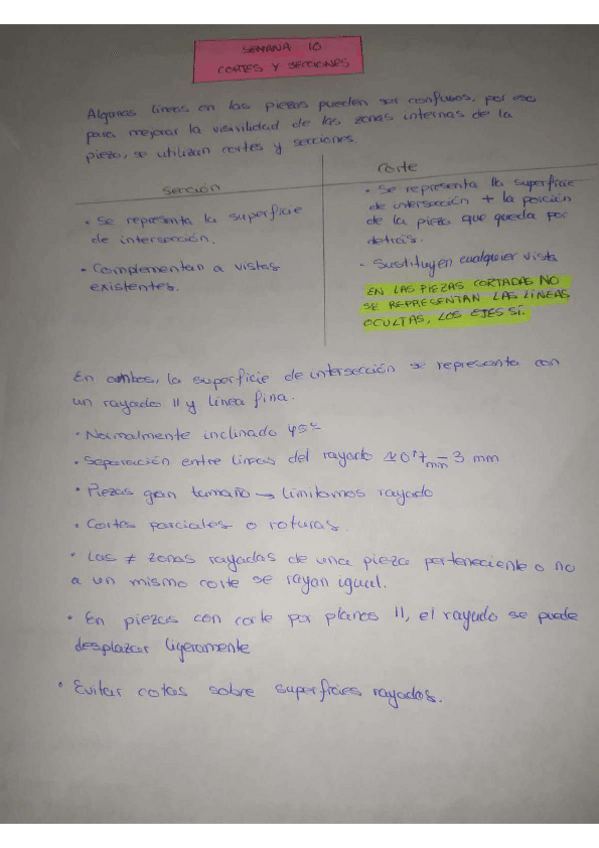 SEMANA 10
CORTES Y SECCIONES
Algunas líneas en las piezas pueden ser confusas, por eso
para mejorar la visivilidad de las zonas internas de la
pieza, se utilizan cortes y secciones.
Sección
• Se representa la superficie
de intersección.
• Complementan a vistas
existentes.
Corte
• Se representa la superficie
de intersección + la porción
de la pieza que queda por
detrás.
- Sustituyen cualquier vista
EN LAS PIEZAS CORTADAS NO
SE REPRESENTAN LAS LÍNEAS
OCULTAS, LOS EJES SÍ.
En ambos, la superficie de intersección se representa con
un rayado || y línea fina.
• Normalmente inclinado 45º
• Separación entre líneas del rayado 0'7 mm - 3 mm
• Piezas gran tamaño → limitamos rayado
• Cortes parciales o roturas.
• Las ≠ zonas rayadas de una pieza perteneciente o no
a un mismo corte se rayan igual.
• En piezas con corte por planos ||, el rayado se puede
desplazar ligeramente
• Evitar cotas sobre superficies rayados.